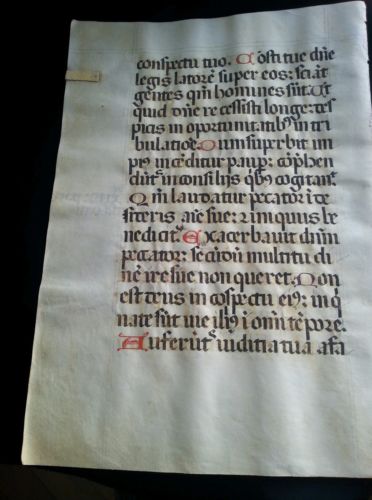 conspectu tuo. Cōstitue dn̄e
legis latorē super eos: sciāt
gentes qm̄ homines sūt. Ut
quid dn̄e recessisti longe: des
picis in oportunitatibꝰ in tri
bulatiōe. Dum superbit im
piꝰ incēditur paup: cōphen
dūtᷣ in consilijs qbꝰ cogitantᷣ.
Qm̄ laudatur pctātor i de
siderijs aīe sue: ⁊ iniquus be
nedicitᷣ. Exacerbauit dnm̄
pctātor: secūdū multitudi
nē ire sue non queret. Non
est deus in cōspectu eiꝰ: inq̄
nate sūt uie illiꝰ i om̄i tēpore.
Auferūtᷣ iuditia tua a fa